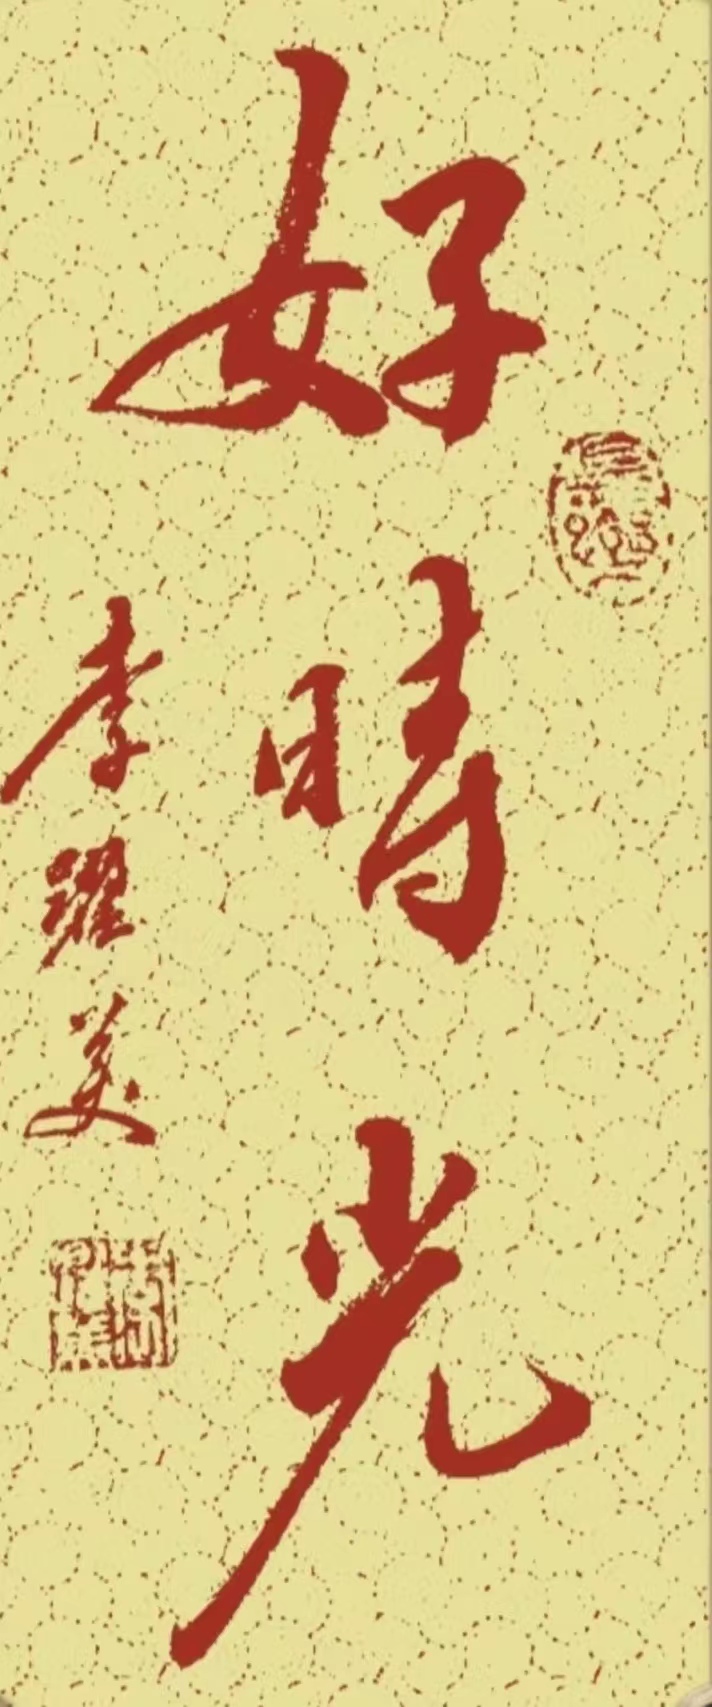 好時光
李躍美